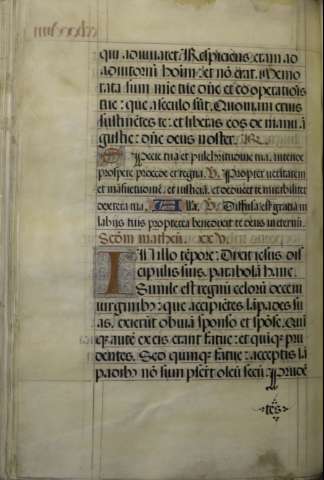 qui adiuvaret. Respiciens eram ad
adiutoriū hoīm: et nō erat. Memo
rata sum mie tue dn̄e et coopatiōis
tue: que a seculo sūt. Quoniam eruis
sustinētes te: et libetas eos de manu ā
gustie: dn̄e deus noster.
Specie tua et pulchritudine tua. intende
prospere procede et regna. V. Propter veritatem
et māsuetudinē. et iusticiā. et deducet te mirabiliter
dextera tua. Alla. V. Diffusa est gratia in
labijs tuis propterea benedixit te deus in eternū.
Scdm matheū. xxv.
In illo tēpore: Dixit iesus dis
cipulis suis. parabolā hanc.
Simile est regnū celorū decem
virginibꝫ: que accipiētes lāpades su
as, exierūt obuiā sponso et spōse. Qui
qꝫ autē ex eis erant fatue: et quīqꝫ pru
dentes. Sed quinqꝫ fatue: acceptis lā
padibꝫ nō sūm psert oleū secū: Prudē
tes